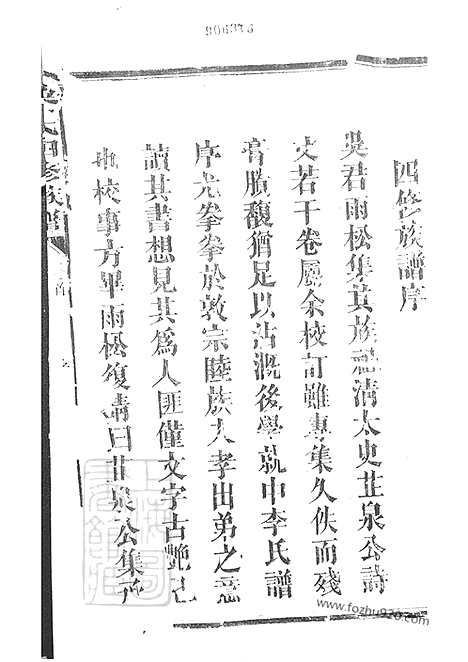 906376
四修族譜序
吳君雨松集其族祖清太史芷泉公詩
文若干卷屬余校訂雖專集久佚而殘
膏賸馥猶足以沾溉後學就中李氏譜
序尤拳拳於敦宗睦族入孝出弟之意
讀其書想見其為人匪僅文字古艷已
也校事方畢雨松復請曰芷泉公集
四修族譜
www.fozhu920.com